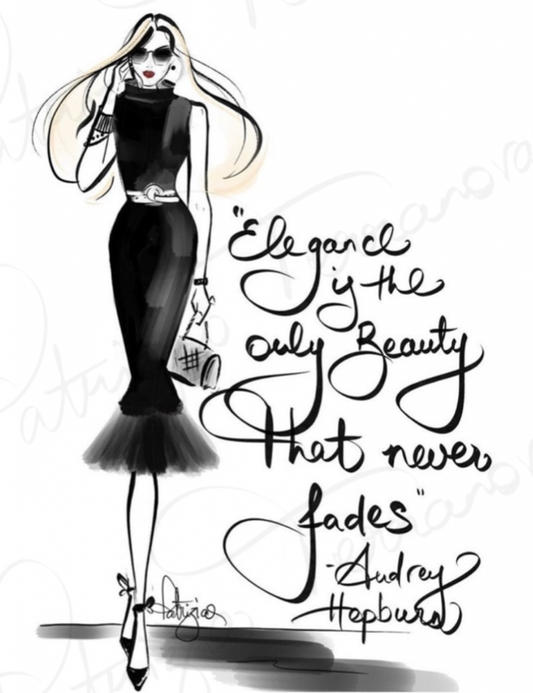 "Elegance
is the
only Beauty
That never
fades"
-Audrey
Hepburn
Patrizia